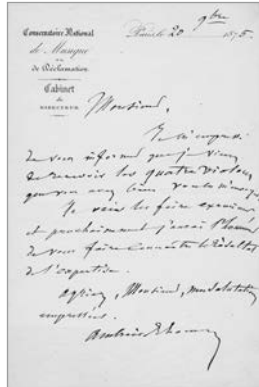 Conservatoire National
de Musique
et de
Déclamation.
Cabinet
du
DIRECTEUR.
Paris le 20 9bre 1875
Monsieur,
Je m'empresse
de vous informer que je viens
de recevoir les quatre violons
que vous avez bien voulu
Je vais les faire examiner
et prochainement j'aurai l'honneur
de vous faire connaître le Résultat
de l'expertise.
Agréez, Monsieur, mes salutations
empressées.
Ambroise Thomas